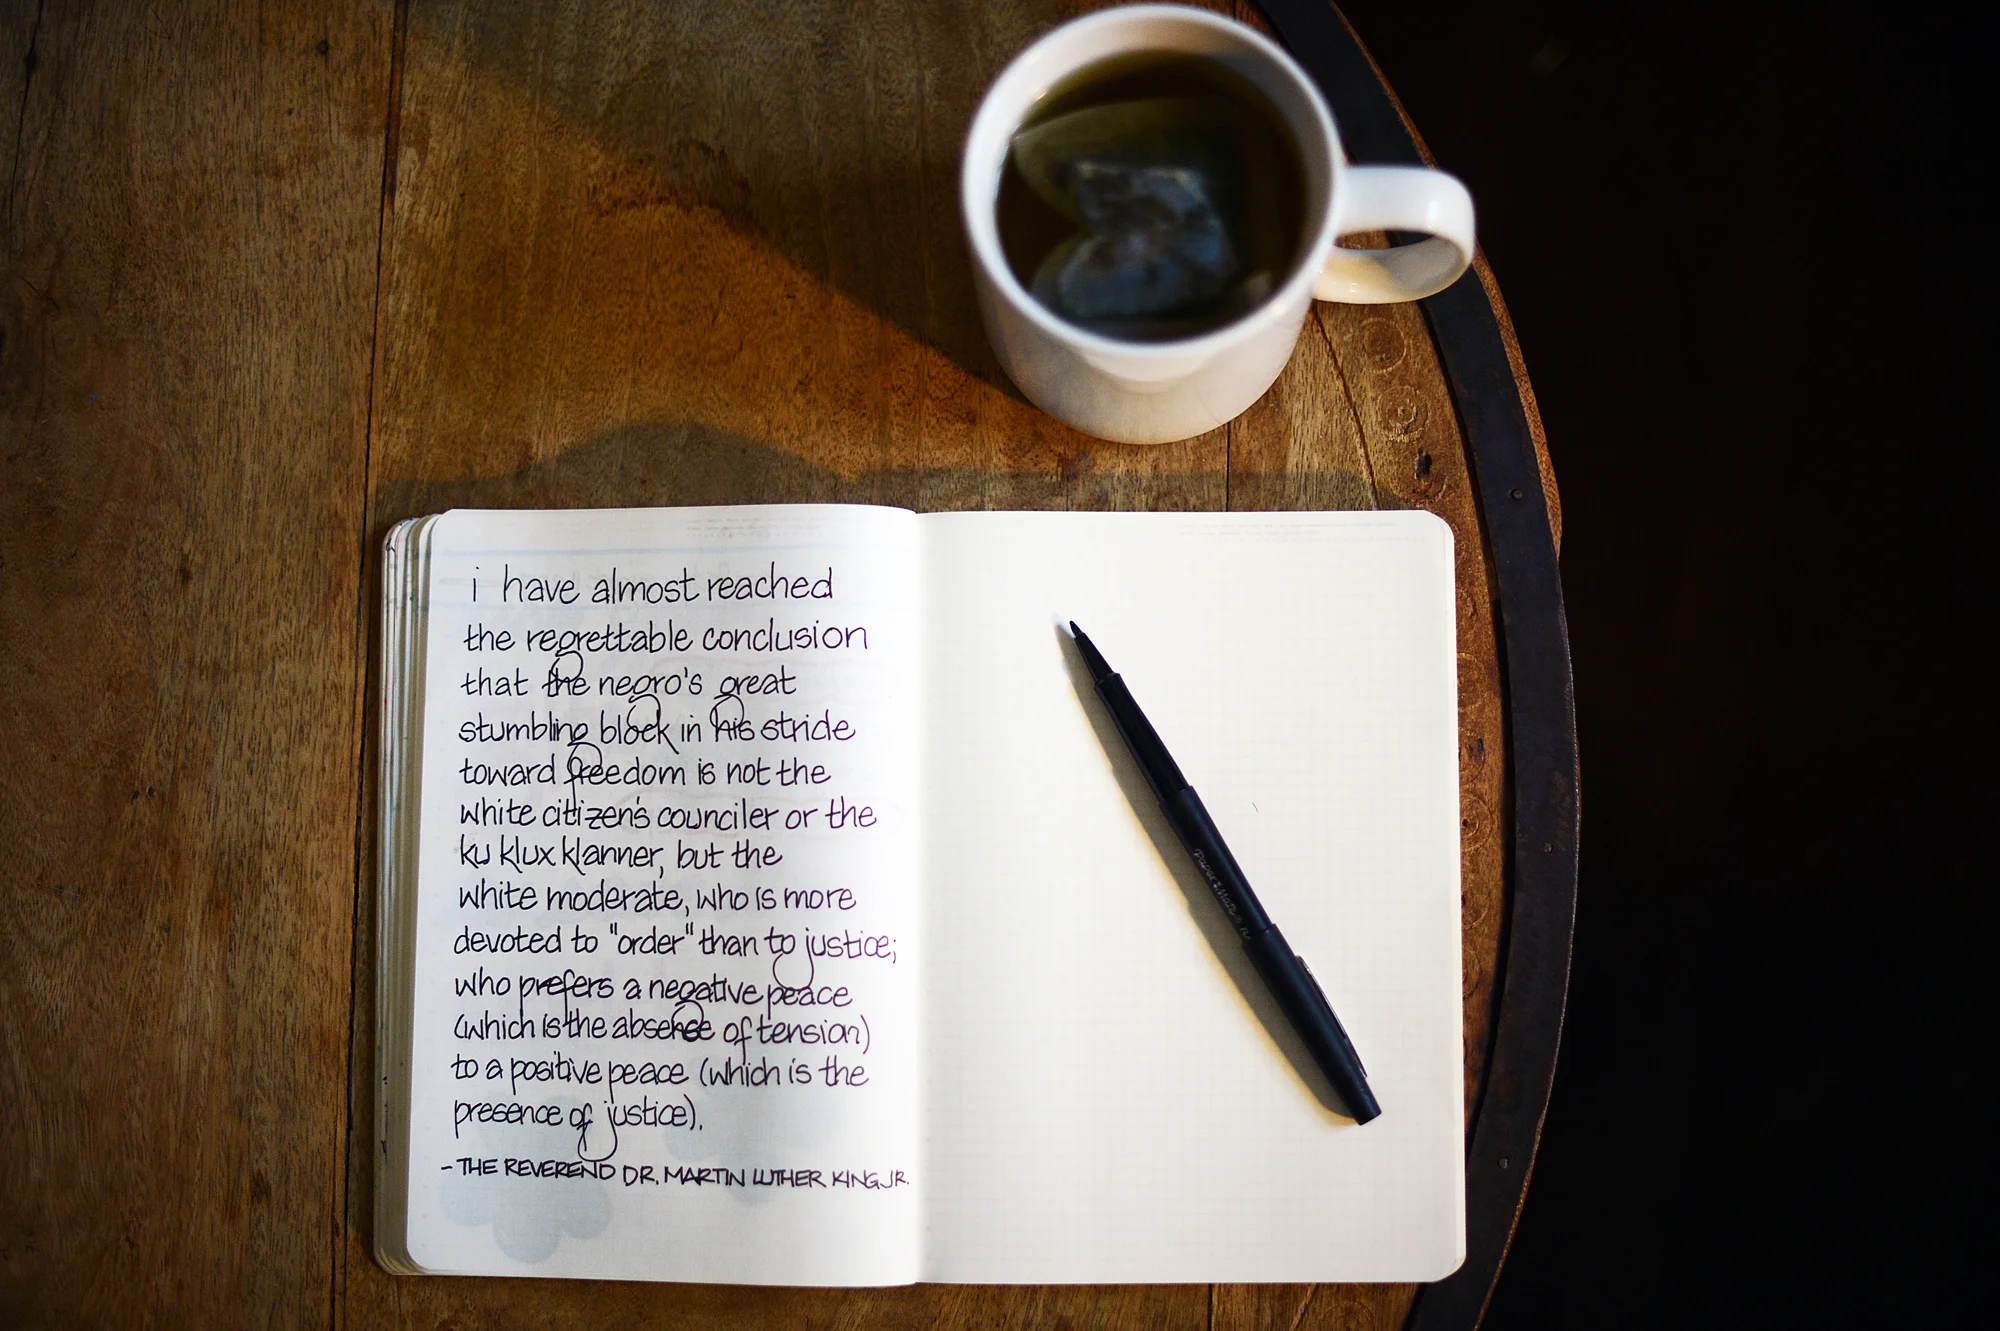 i have almost reached
the regrettable conclusion
that the negro's great
stumbling block in his stride
toward freedom is not the
white citizen's counciler or the
ku klux klanner, but the
white moderate, who is more
devoted to "order" than to justice;
who prefers a negative peace
(which is the absense of tension)
to a positive peace (which is the
presence of justice).
- THE REVEREND DR. MARTIN LUTHER KING JR.
Paper Mate